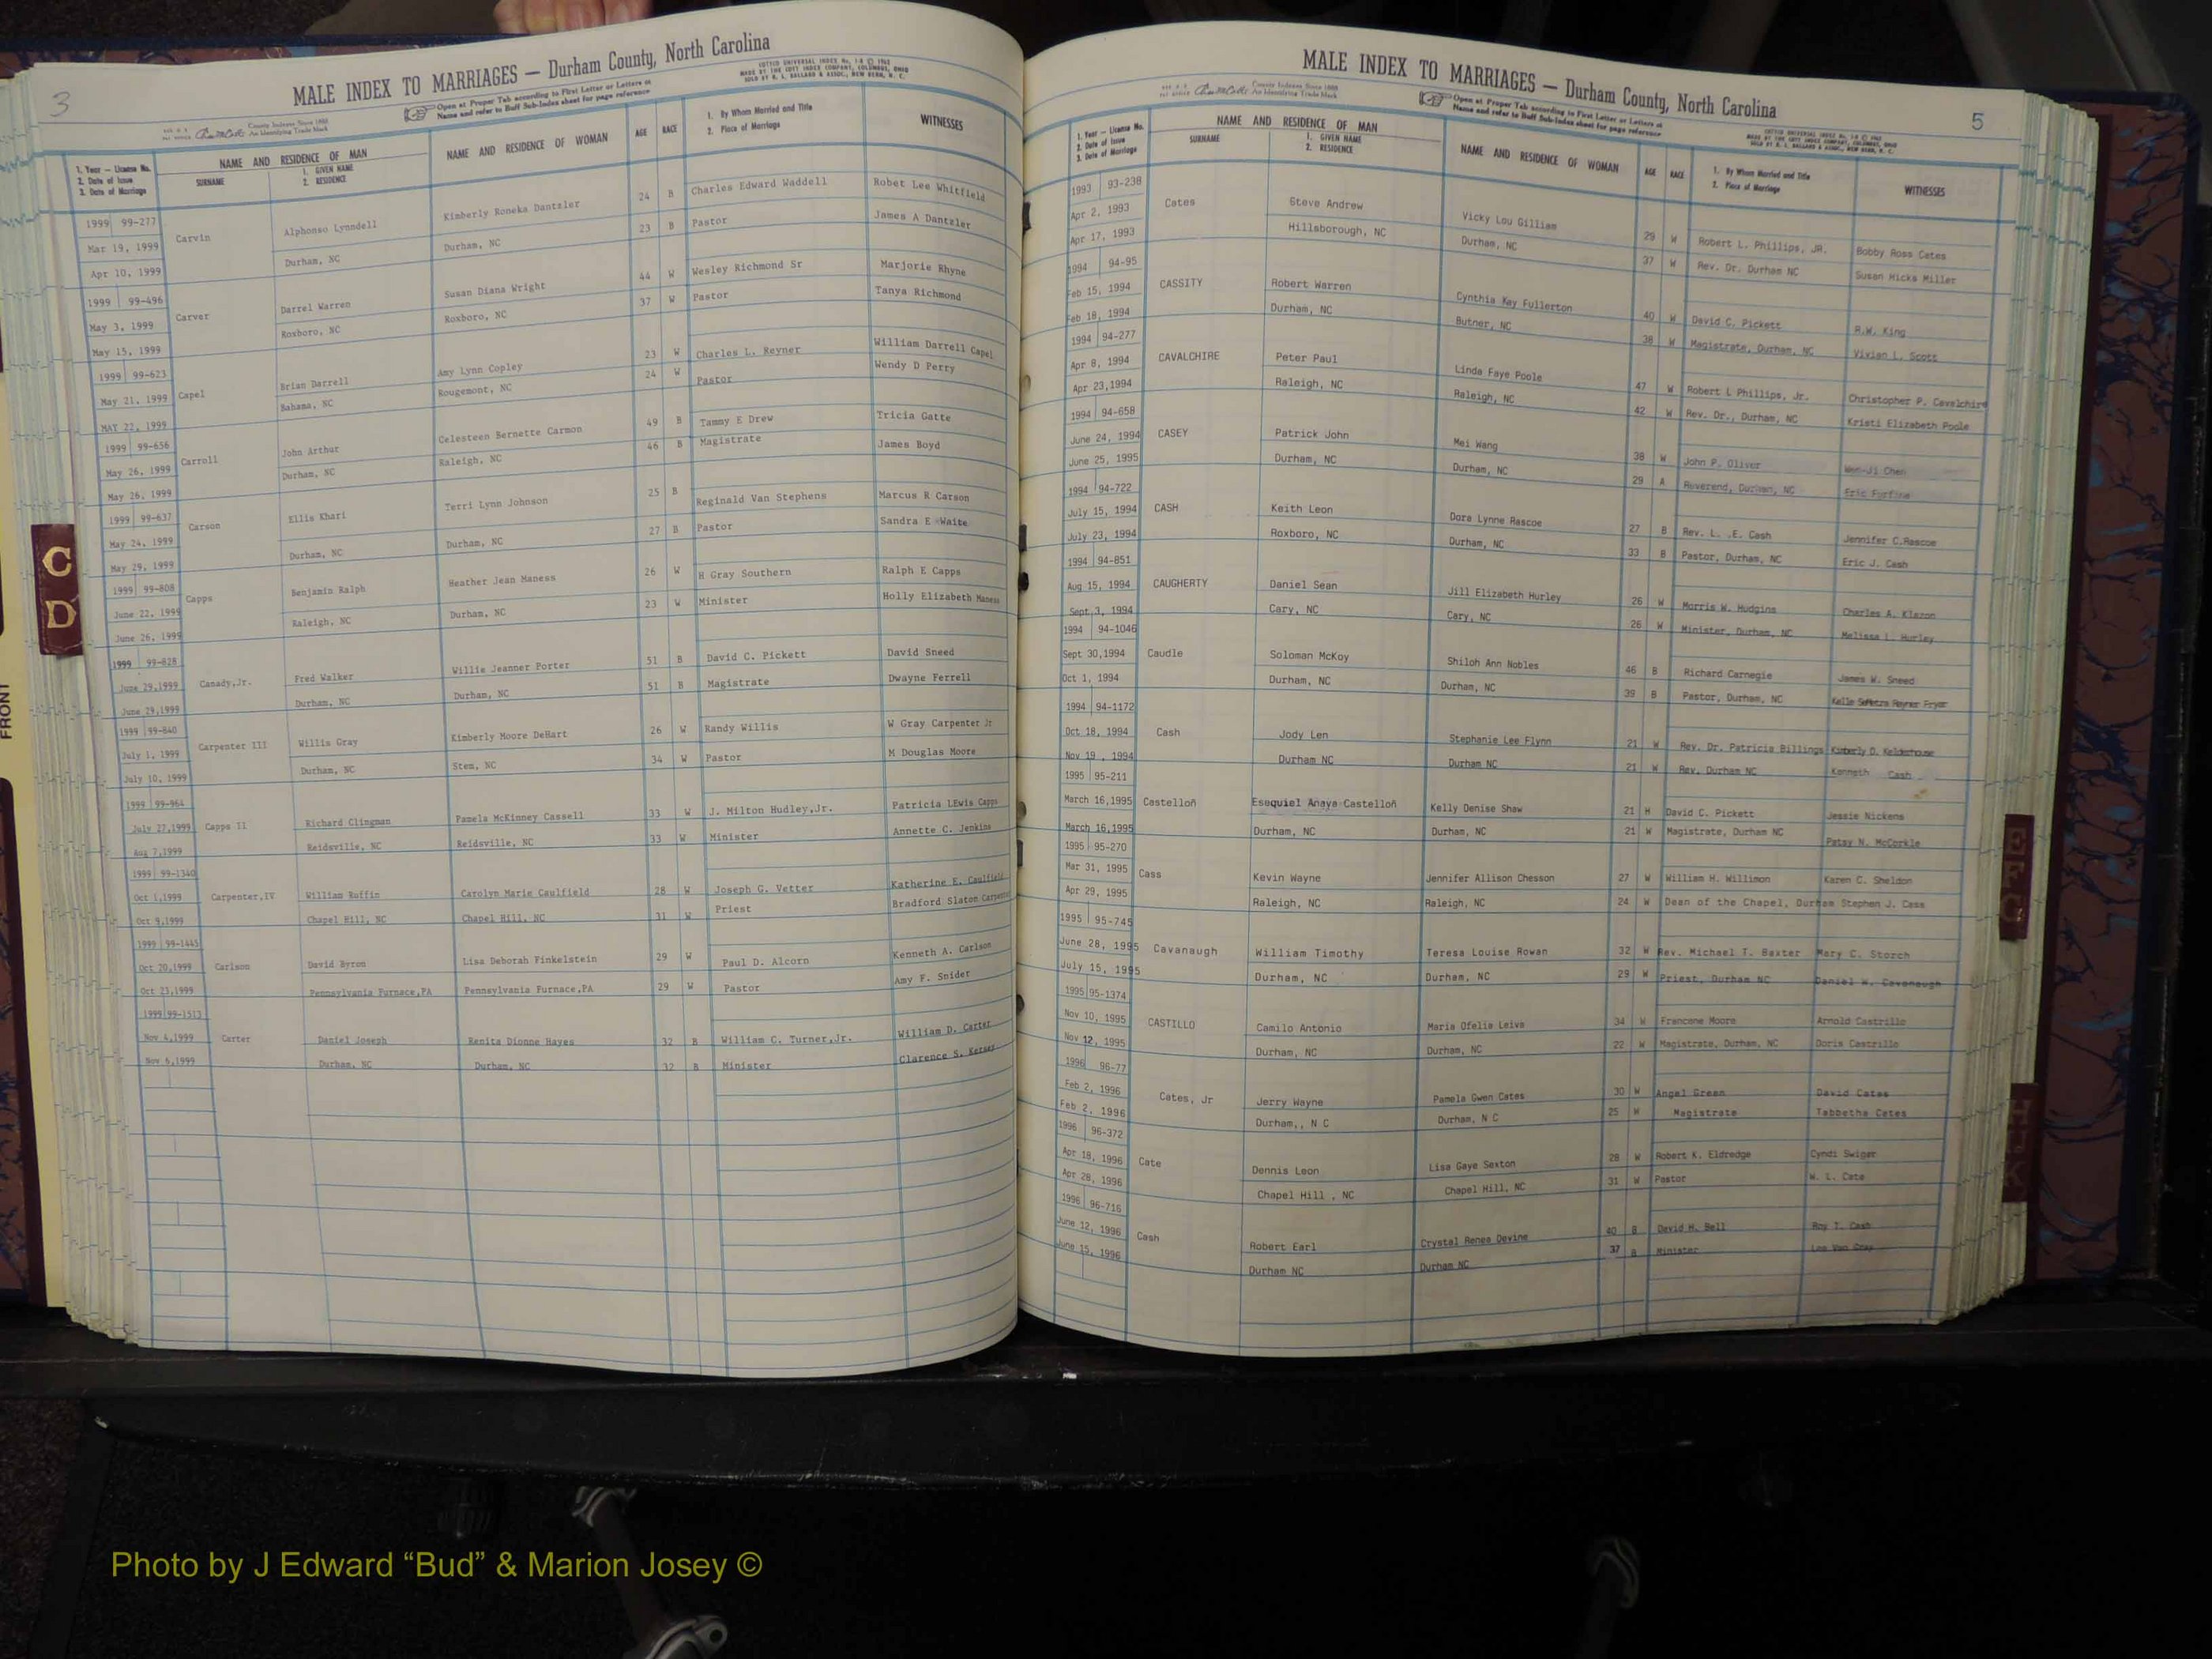 3
MALE INDEX TO MARRIAGES — Durham County, North Carolina
COTTCO UNIVERSAL INDEX
MADE BY THE COTT INDEX COMPANY, COLUMBUS, OHIO
SOLD BY R. L. BALLARD & ASSOC., NEW BERN, N. C.
County Indexes Since 1888
An Identifying Trade Mark
Open at Proper Tab according to First Letter or Letters of
Name and refer to Buff Sub-Index sheet for page reference
1. Year — License No.
2. Date of Issue
3. Date of Marriage
NAME AND RESIDENCE OF MAN
SURNAME
1. GIVEN NAME
2. RESIDENCE
NAME AND RESIDENCE OF WOMAN
AGE
RACE
1. By Whom Married and Title
2. Place of Marriage
WITNESSES
1999 99-277 Carvin Alphonso Lynndell Kimberly Roneka Dantzler 24 B Charles Edward Waddell Robet Lee Whitfield
Mar 19, 1999 Durham, NC Durham, NC 23 B Pastor James A Dantzler
Apr 10, 1999
1999 99-496 Carver Darrel Warren Susan Diana Wright 44 W Wesley Richmond Sr Marjorie Rhyne
May 3, 1999 Roxboro, NC Roxboro, NC 37 W Pastor Tanya Richmond
May 15, 1999
1999 99-623 Capel Brian Darrell Amy Lynn Copley 23 W Charles L. Reyner William Darrell Capel
May 21, 1999 Bahama, NC Rougemont, NC 24 W Pastor Wendy D Perry
MAT 22, 1999
1999 99-656 Carroll John Arthur Celesteen Bernette Carmon 49 B Tammy E Drew Tricia Gatte
May 26, 1999 Durham, NC Raleigh, NC 46 B Magistrate James Boyd
May 26, 1999
1999 99-637 Carson Ellis Khari Terri Lynn Johnson 25 B Reginald Van Stephens Marcus R Carson
May 24, 1999 Durham, NC Durham, NC 27 B Pastor Sandra E Waite
May 29, 1999
1999 99-808 Capps Benjamin Ralph Heather Jean Maness 26 W H Gray Southern Ralph E Capps
June 22, 1999 Raleigh, NC Durham, NC 23 W Minister Holly Elizabeth Maness
June 26, 1999
1999 99-828 Canady,Jr. Fred Walker Willie Jeanner Porter 51 B David C. Pickett David Sneed
June 29,1999 Durham, NC Durham, NC 51 B Magistrate Dwayne Ferrell
June 29,1999
1999 99-840 Carpenter III Willis Gray Kimberly Moore DeHart 26 W Randy Willis W Gray Carpenter Jr
July 1, 1999 Durham, NC Stem, NC 34 W Pastor M Douglas Moore
July 10, 1999
1999 99-964 Capps II Richard Clingman Pamela McKinney Cassell 33 W J. Milton Hudley,Jr. Patricia LEwis Capps
July 27,1999 Reidsville, NC Reidsville, NC 33 W Minister Annette C. Jenkins
Aug 7,1999
1999 99-1340 Carpenter,IV William Ruffin Carolyn Marie Caulfield 28 W Joseph G. Vetter Katherine E. Caulfield
Oct 1,1999 Chapel Hill, NC Chapel Hill, NC 31 W Priest Bradford Slaton Carpenter
Oct 9,1999
1999 99-1445 Carlson David Byron Lisa Deborah Finkelstein 29 W Paul D. Alcorn Kenneth A. Carlson
Oct 20,1999 Pennsylvania Furnace,PA Pennsylvania Furnace,PA 29 W Pastor Amy F. Snider
Oct 23,1999
1999 99-1513 Carter Daniel Joseph Renita Dionne Hayes 32 B William C. Turner,Jr. William D. Carter
Nov 4,1999 Durham, NC Durham, NC 32 B Minister Clarence S.
Nov 6,1999
C
D
FRONT
MALE INDEX TO MARRIAGES — Durham County, North Carolina
5
County Indexes Since 1888
An Identifying Trade Mark
Open at Proper Tab according to First Letter or Letters of
Name and refer to Buff Sub-Index sheet for page reference
1. Year — License No.
2. Date of Issue
3. Date of Marriage
NAME AND RESIDENCE OF MAN
SURNAME
1. GIVEN NAME
2. RESIDENCE
NAME AND RESIDENCE OF WOMAN
AGE
RACE
1. By Whom Married and Title
2. Place of Marriage
WITNESSES
1993 93-238 Cates Steve Andrew Vicky Lou Gilliam 29 W Robert L. Phillips, JR. Bobby Ross Cates
Apr 2, 1993 Hillsborough, NC Durham, NC 37 W Rev. Dr. Durham NC Susan Hicks Miller
Apr 17, 1993
1994 94-95 CASSITY Robert Warren Cynthia Kay Fullerton 40 W David C. Pickett R.W. King
Feb 15, 1994 Durham, NC Butner, NC 38 W Magistrate, Durham, NC Vivian L. Scott
Feb 18, 1994
1994 94-277 CAVALCHIRE Peter Paul Linda Faye Poole 47 W Robert L Phillips, Jr. Christopher P. Cavalchire
Apr 8, 1994 Raleigh, NC Raleigh, NC 42 W Rev. Dr., Durham, NC Kristi Elizabeth Poole
Apr 23,1994
1994 94-658 CASEY Patrick John Mei Wang 38 W John P. Oliver Wen-Ji Chen
June 24, 1994 Durham, NC Durham, NC 29 A Reverend, Durham, NC Eric Furfine
June 25, 1995
1994 94-722 CASH Keith Leon Dora Lynne Rascoe 27 B Rev. L. .E. Cash Jennifer C.Rascoe
July 15, 1994 Roxboro, NC Durham, NC 33 B Pastor, Durham, NC Eric J. Cash
July 23, 1994
1994 94-851 CAUGHERTY Daniel Sean Jill Elizabeth Hurley 26 W Morris W. Hudgins Charles A. Klazon
Aug 15, 1994 Cary, NC Cary, NC 26 W Minister, Durham, NC Melissa L. Hurley
Sept 3, 1994
1994 94-1046 Caudle Soloman McKoy Shiloh Ann Nobles 46 B Richard Carnegie James W. Sneed
Sept 30,1994 Durham, NC Durham, NC 39 B Pastor, Durham, NC
Oct 1, 1994
1994 94-1172 Cash Jody Len Stephanie Lee Flynn 21 W Rev. Dr. Patricia Billings Kimberly D. Kelderhouse
Oct 18, 1994 Durham NC Durham NC 21 W Rev. Durham NC Kenneth Cash
Nov 19 , 1994
1995 95-211 Castelloñ Esequiel Anaya Castelloñ Kelly Denise Shaw 21 H David C. Pickett Jessie Nickens
March 16,1995 Durham, NC Durham, NC 21 W Magistrate, Durham NC Patsy N. McCorkle
March 16,1995
1995 95-270 Cass Kevin Wayne Jennifer Allison Chesson 27 W William H. Willimon Karen C. Sheldon
Mar 31, 1995 Raleigh, NC Raleigh, NC 24 W Dean of the Chapel, Durham Stephen J. Cass
Apr 29, 1995
1995 95-745 Cavanaugh William Timothy Teresa Louise Rowan 32 W Rev. Michael T. Baxter Mary C. Storch
June 28, 1995 Durham, NC Durham, NC 29 W Priest, Durham NC Daniel W. Cavanaugh
July 15, 1995
1995 95-1374 CASTILLO Camilo Antonio Maria Ofelia Leiva 34 W Francene Moore Arnold Castrillo
Nov 10, 1995 Durham, NC Durham, NC 22 W Magistrate, Durham, NC Doris Castrillo
Nov 12, 1995
1996 96-77 Cates, Jr Jerry Wayne Pamela Gwen Cates 30 W Angel Green David Cates
Feb 2, 1996 Durham,, N C Durham, N C 25 W Magistrate Tabbetha Cates
Feb 2, 1996
1996 96-372 Cate Dennis Leon Lisa Gaye Sexton 28 W Robert K. Eldredge Cyndi Swiger
Apr 18, 1996 Chapel Hill , NC Chapel Hill, NC 31 W Pastor W. L. Cate
Apr 28, 1996
1996 96-716 Cash Robert Earl Crystal Renea Devine 40 B David H. Bell Roy T. Cash
June 12, 1996 Durham NC Durham NC 37 B Minister Lee Van Gray
June 15, 1996
Photo by J Edward “Bud” & Marion Josey ©